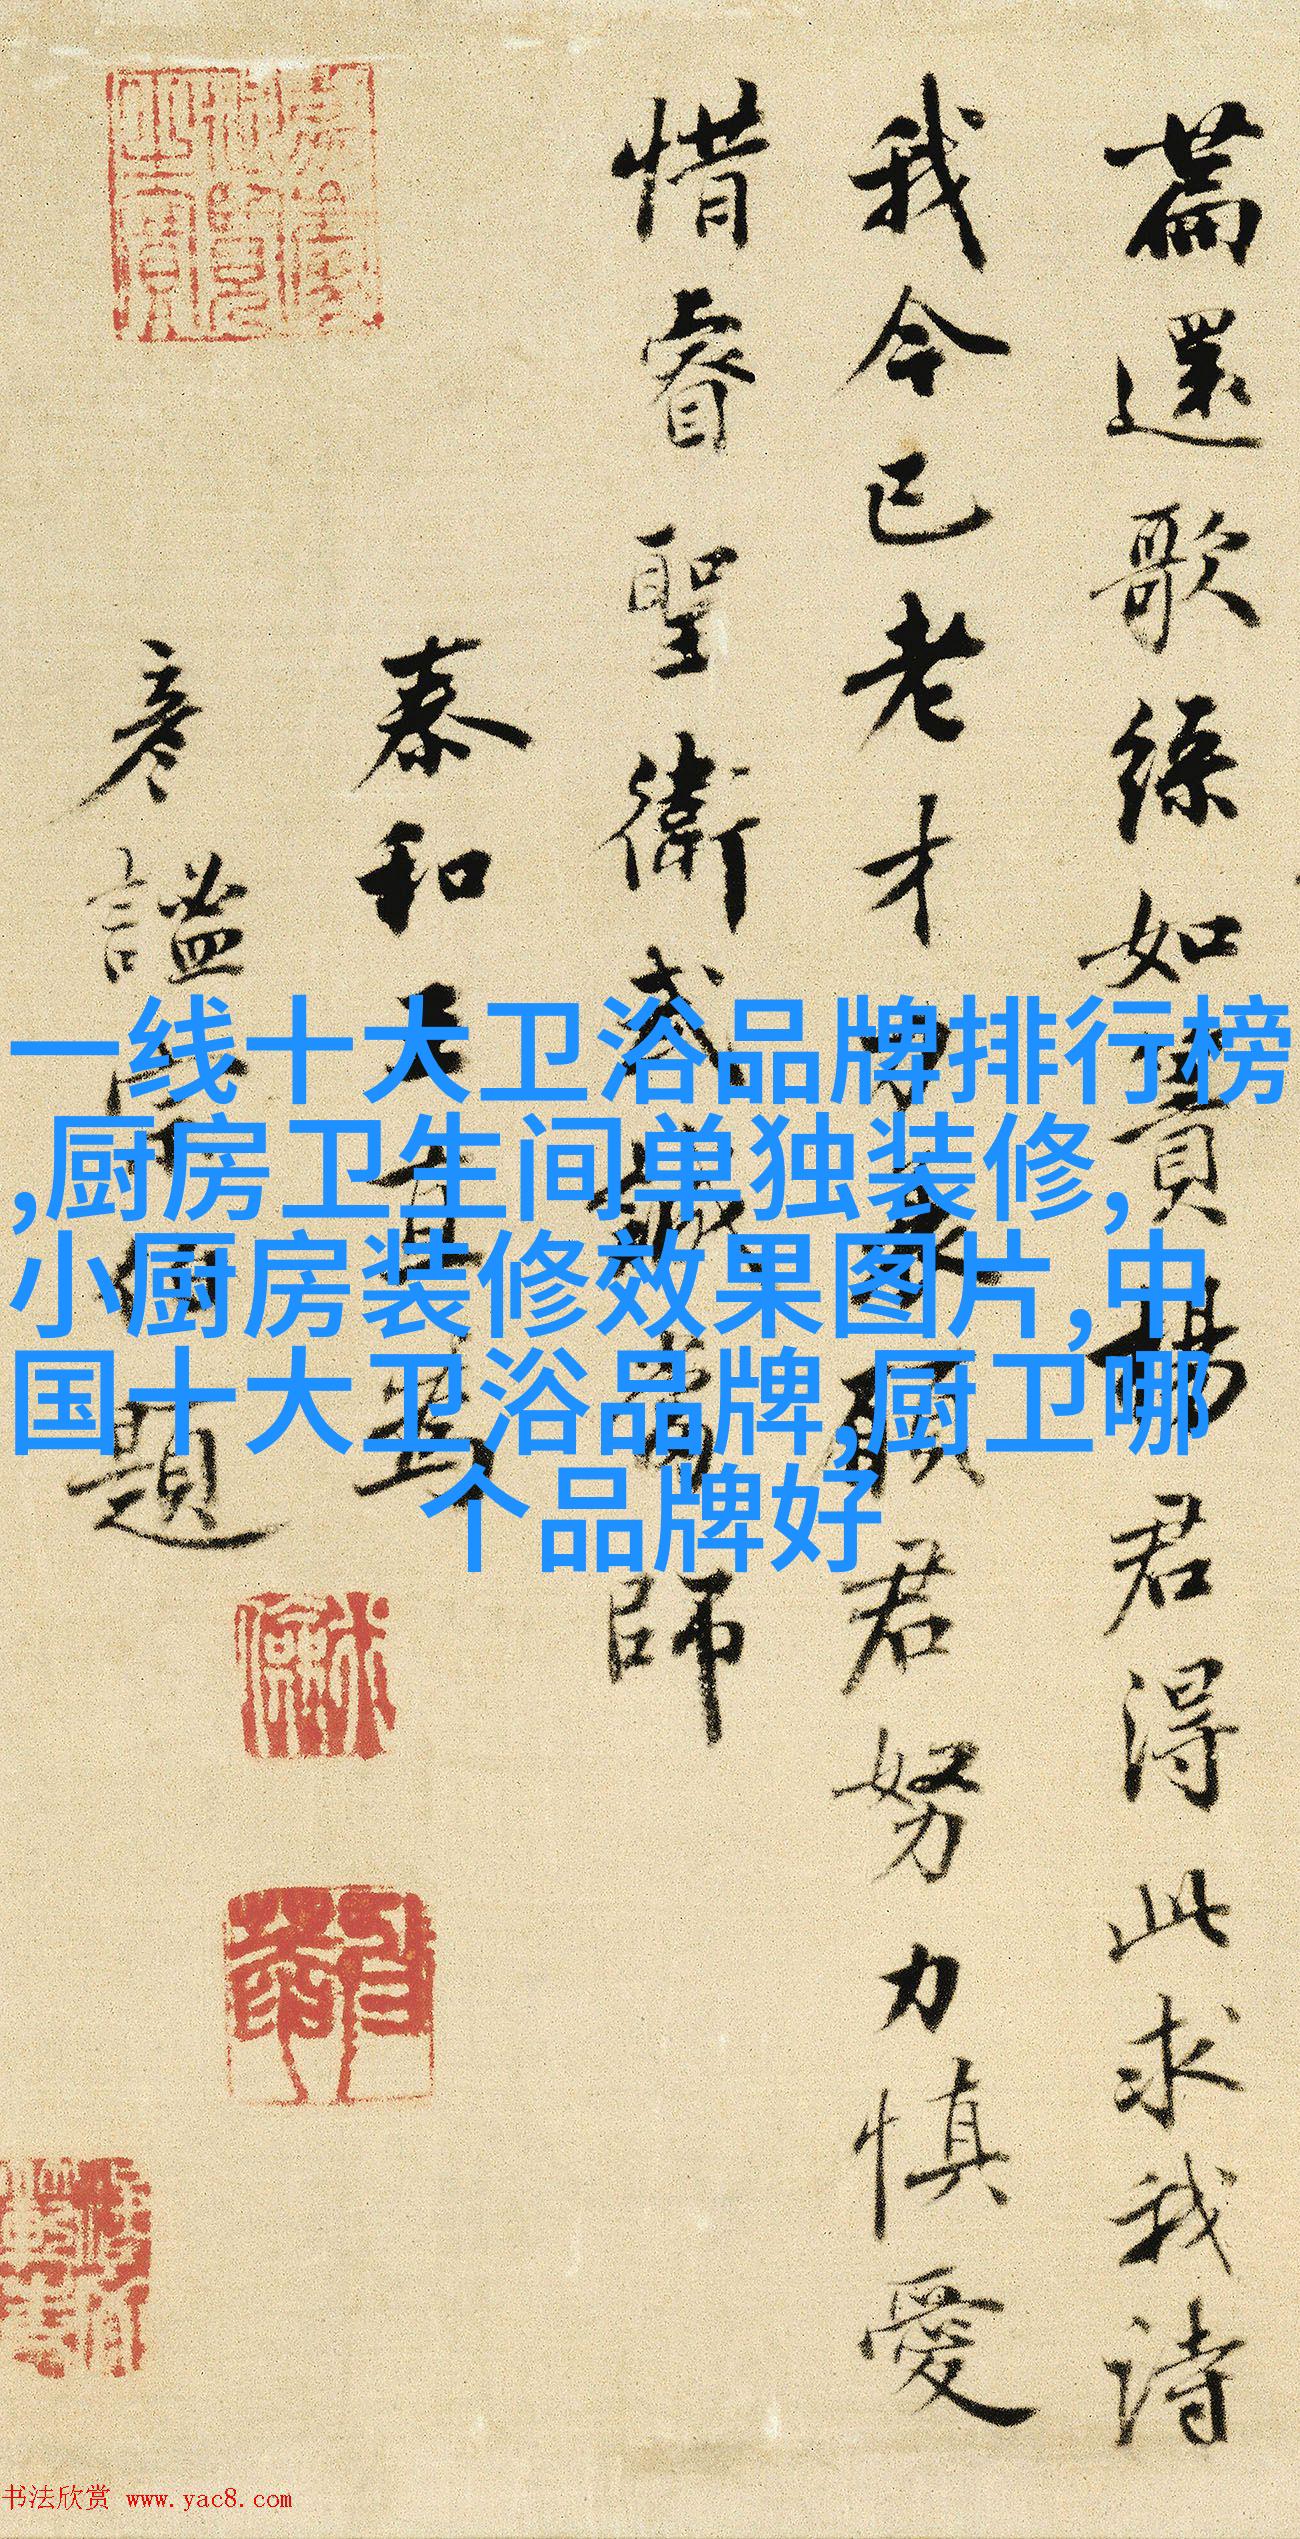 篇還歌綠如賣揚君得此求我詩
我今已老才力衰顧君努力慎愛
惜睿聖衛武誠當師
泰和王直為
彥謐
題
一线十大卫浴品牌排行榜
,厨房卫生间单独装修,
小厨房装修效果图片,中
国十大卫浴品牌,厨卫哪
个品牌好
书法欣赏 www.yac8.com